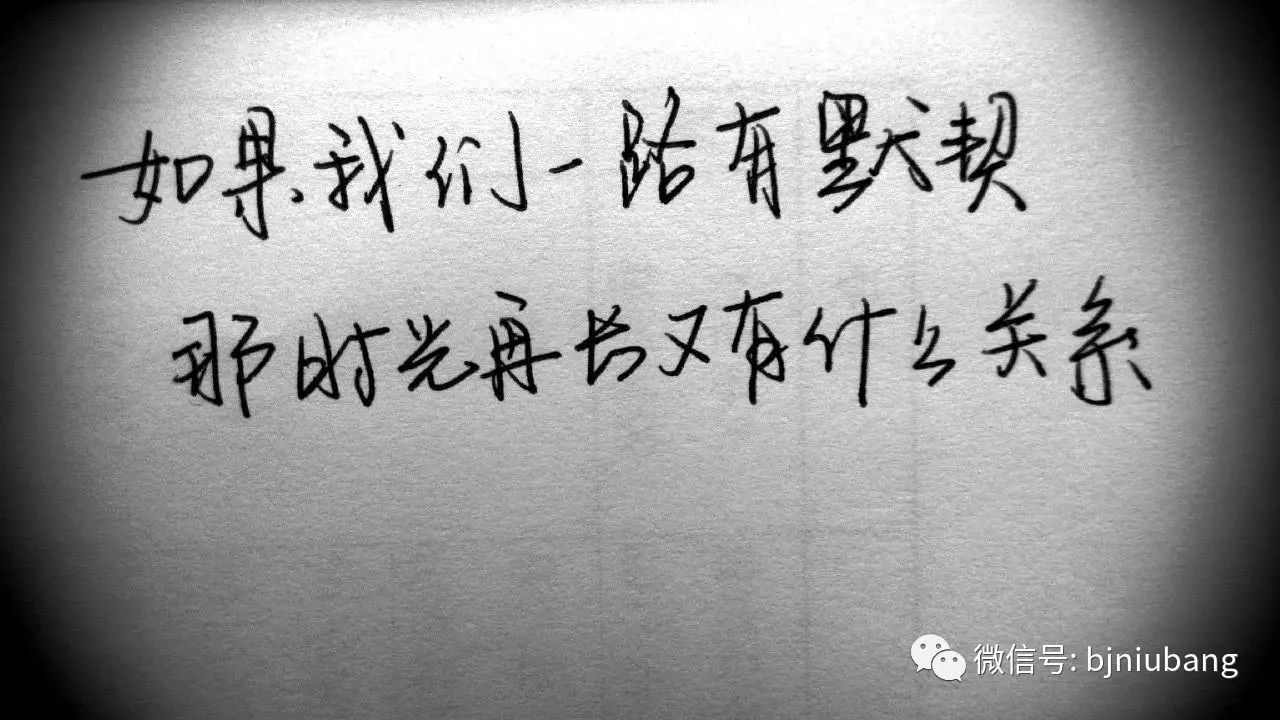 如果我们一路有默契
那时光再长又有什么关系
微信号: bjniubang